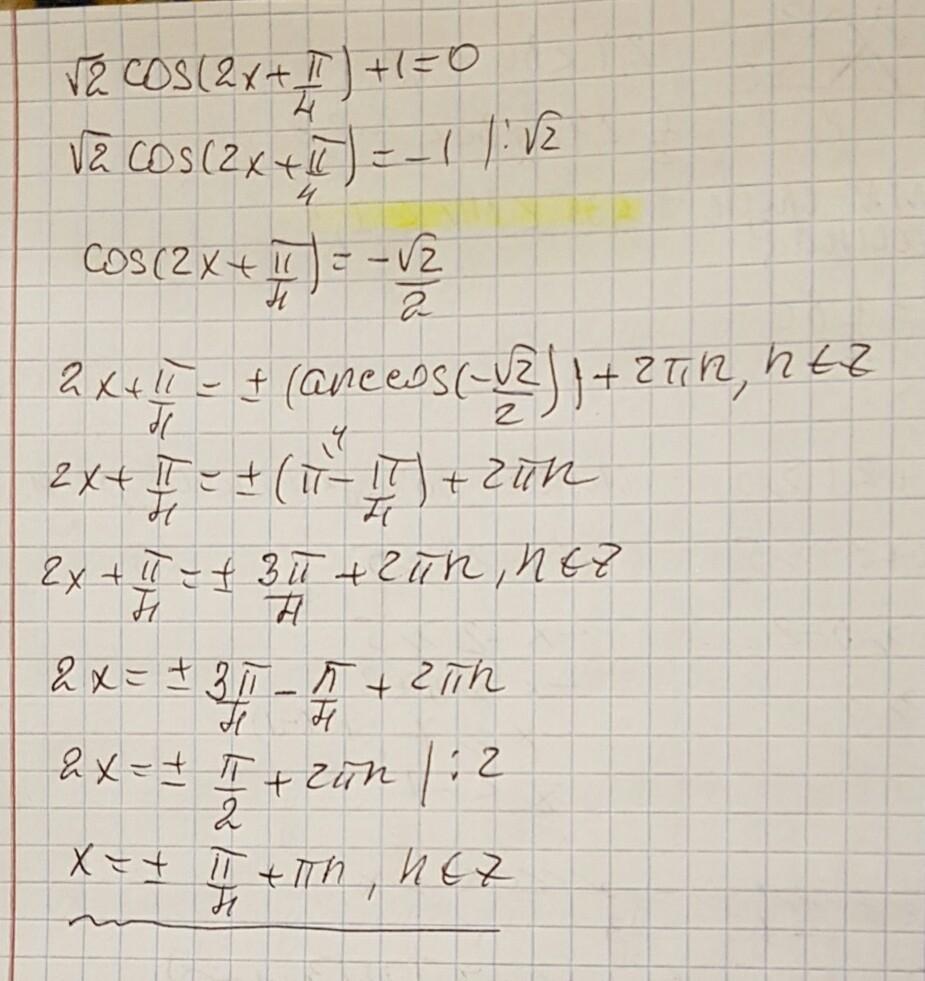 √2 cos(2x + π/4) + 1 = 0
√2 cos(2x + π/4) = -1 | : √2
cos(2x + π/4) = -√2/2
2x + π/4 = ± (arccos(-√2/2)) + 2πn, n ∈ Z
2x + π/4 = ± (π\4 - π/4) + 2πn
2x + π/4 = ± 3π/4 + 2πn, n ∈ Z
2x = ± 3π/4 - π/4 + 2πn
2x = ± π/2 + 2πn | : 2
x = ± π/4 + πn, n ∈ Z